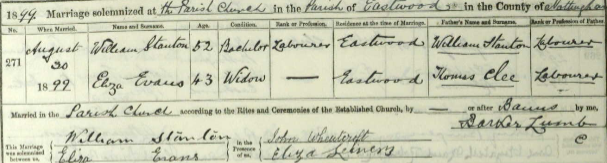 1899. Marriage solemnized at the Parish Church in the Parish of Eastwood in the County of Nottingham
No. When Married. Name and Surname. Age. Condition. Rank or Profession. Residence at the time of Marriage. Father's Name and Surname. Rank or Profession of Father.
271 August 20 1899 William Stanton 52 Bachelor Labourer Eastwood William Stanton Labourer
Eliza Evans 43 Widow — Eastwood Thomas Clee Labourer
Married in the Parish Church according to the Rites and Ceremonies of the Established Church, by — or after Banns by me,
Barker Lumb
This Marriage was solemnized between us, William Stanton Eliza Evans in the Presence of us, John Wheatcroft Eliza